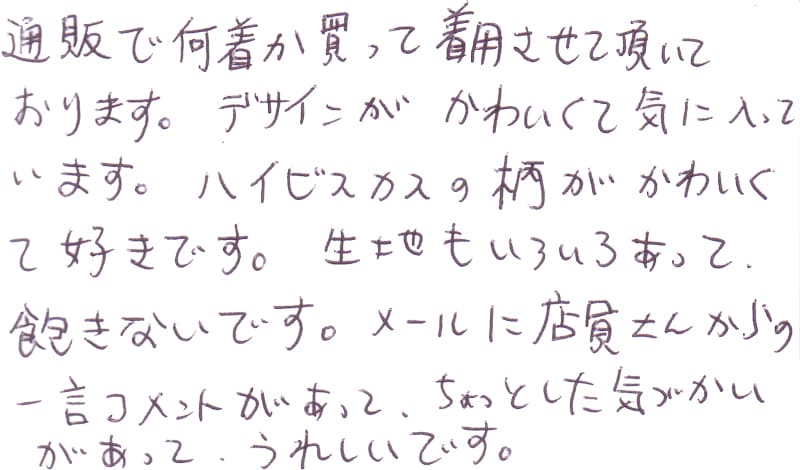 通販で何着か買って着用させて頂いて
おります。デザインが かわいくて気に入って
います。ハイビスカスの柄がかわいく
て好きです。生地もいろいろあって、
飽きないです。メールに店員さんからの
一言コメントがあって、ちょっとした気づかい
があって、うれしいです。